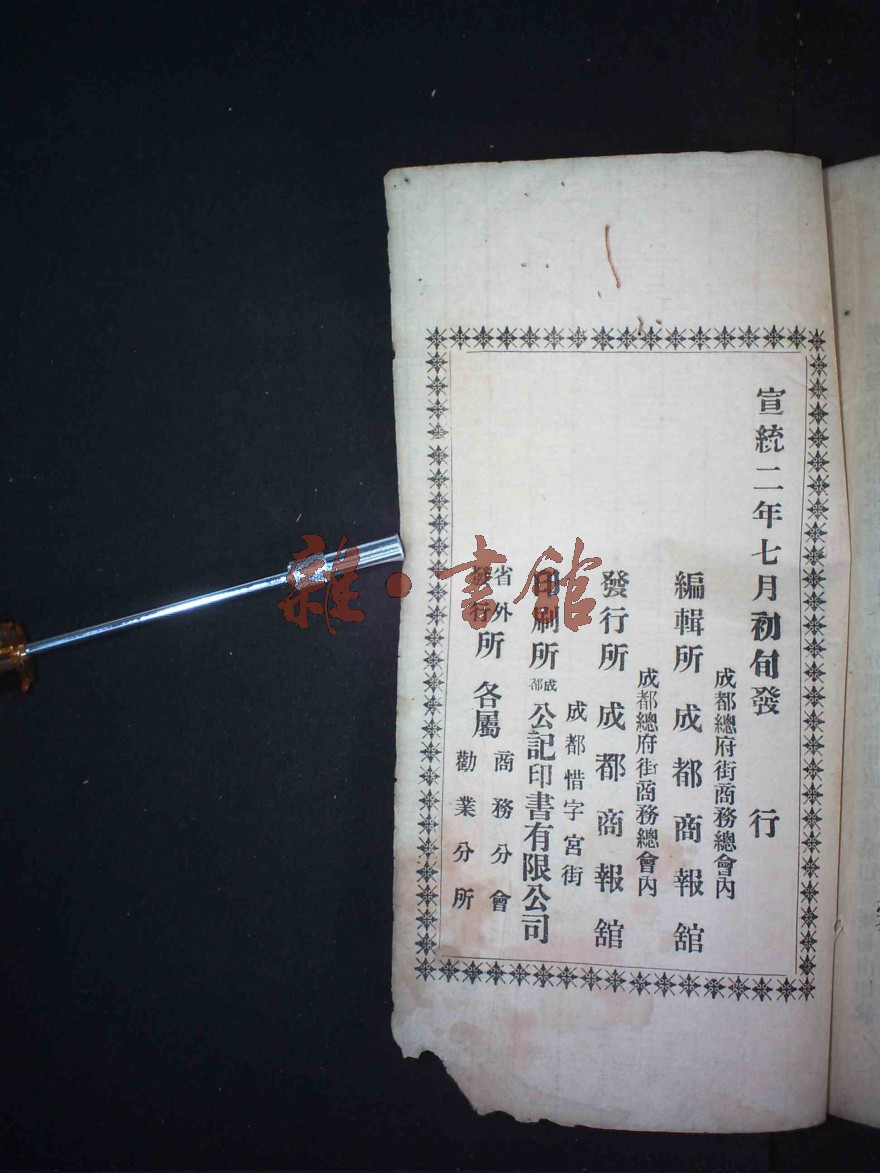 宣統二年七月初旬發行
成都總府街商務總會內
編輯所 成都商報舘
成都總府街商務總會內
發行所 成都商報舘
成都惜字宮街
印刷所 成都公記印書有限公司
省外發行所 各屬 商務分會 勸業分所
雜·書館